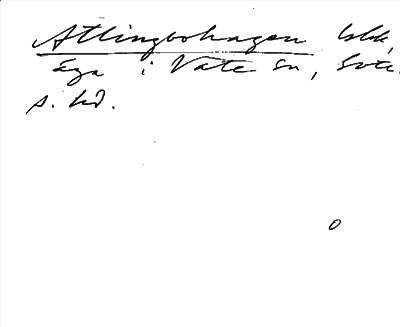 Atlingbohagen bbk,
äga i Väte sn, Gotl.
s. hd.
0